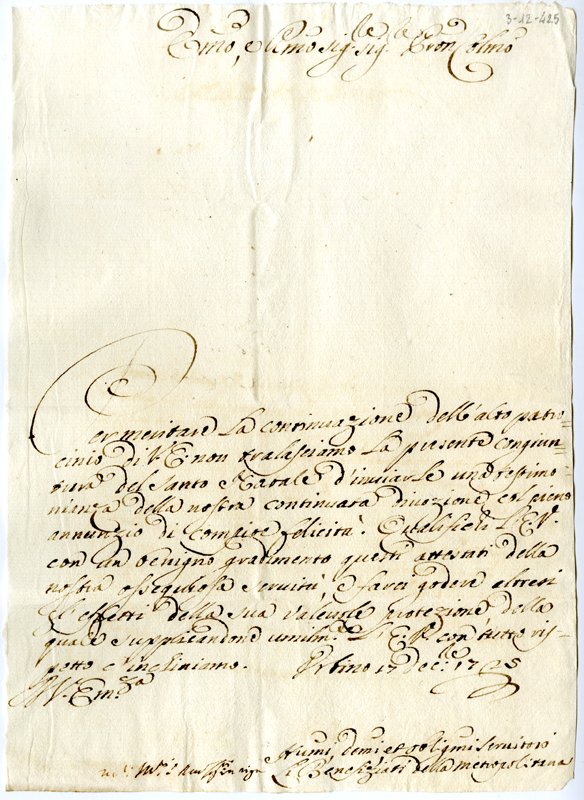 3-12-425
Em̃o, e Rmo Sig.re Sig.re Pron Colmo
Per meritare la continuazione dell'alto patro=
cinio di V.E. non tralasciamo la presente congiun=
tura del Santo Natale d'inviarle una testimo=
nianza della nostra continuata divozione col pieno
annunzio di compite felicità. Qualifichi L'E.V.
con un benigno gradimento questi attestati della
nostra ossequiosa servitù, e farci godere altresi
gl'effetti della sua valevole protezione, della
quale supplicandone umilm.te L'E.V. con tutto ris=
petto c'inchiniamo. Urbino 17 Dec.e 17
D.V. Em.za
Humi, demi et obligmi servitori
Li Beneficiati della Metropolitana